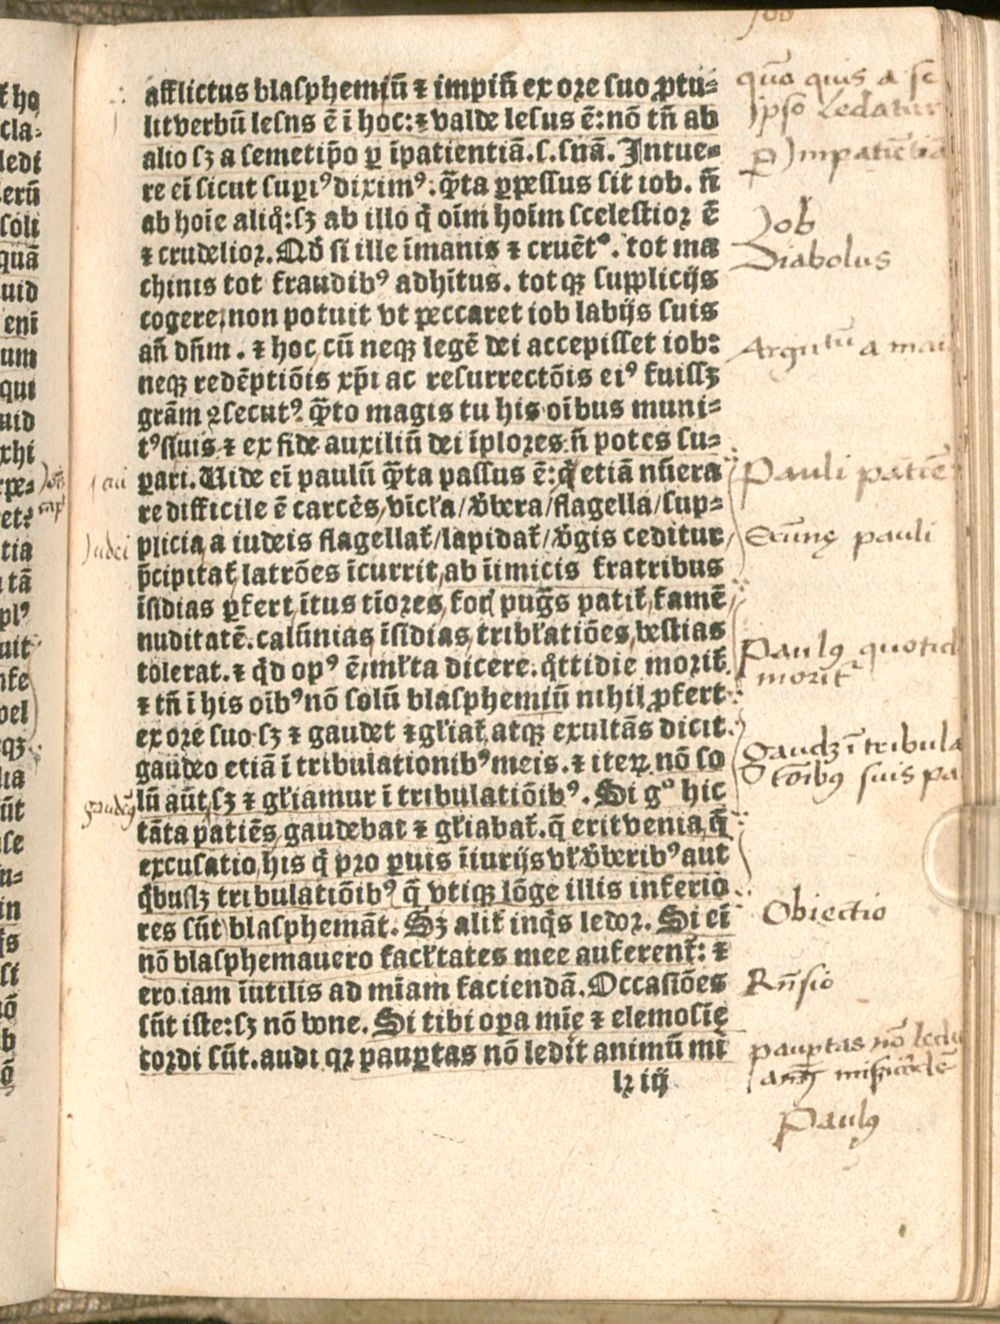 Job
afflictus blasphemiũ ⁊ impiũ ex ore suo ꝓtu-
lit verbũ lesns ẽ ĩ hoc: ⁊ valde lesus ẽ: nõ tñ ab
alio sꝫ a semetip̃o ꝑ ĩpatientiã. s. snã. Intue-
re eĩ sicut supiꝰ diximꝰ: q̃ta ꝑpessus sit iob. ñ
ab hoĩe aliq̃: sꝫ ab illo q̃ oĩm hoĩm scelestior ẽ
⁊ crudelior. Qđ si ille ĩmanis ⁊ cruẽtꝰ. tot ma
chinis tot fraudibꝰ adhĩtus. tot qꝫ supplicijs
cogere, non potuit vt peccaret iob labijs suis
añ dñm. ⁊ hoc, cũ neqꝫ legẽ dei accepisset iob:
neqꝫ redẽptiõis xp̃i ac resurrectõis eiꝰ fuissꝫ
grãm ꝯsecutꝰ. q̃to magis tu his oĩbus muni-
tꝰ, suis ⁊ ex fide auxiliũ dei ĩplores ñ potes su-
pari. Uide eĩ paulũ q̃ta passus ẽ: q̃ etiã nũera
re difficile ẽ carcẽs, vĩcła/ ṽbera/ flagella/ sup-
plicia, a iudeis flagellat̃/ lapidat̃/ ṽgis ceditur,
p̃cipitat̃ latrões ĩcurrit, ab ĩimicis fratribus
ĩsidias ꝑfert, ĩtus tĩores, foꝝ pug̃s patit̃, famẽ
nuditatẽ. calũnias ĩsidias, tribłatiões, bestias
tolerat. ⁊ q̃d opꝰ ẽ, młta dicere. q̃ttidie morit̃.
⁊ tñ ĩ his oĩbꝰ nõ solũ blasphemiũ nihil ꝓfert
ex ore suo sꝫ ⁊ gaudet ⁊ głiat̃. atqꝫ exultãs dicit.
gaudeo etiã ĩ tribulationibꝰ meis. ⁊ iteꝝ nõ so
lũ aũt, sꝫ ⁊ głiamur ĩ tribulatiõibꝰ. Si gͦ hic
tãta patiẽs, gaudebat ⁊ głiabat̃. q̃ erit venia, q̃
excusatio, his q̃ pro ꝑuis ĩiurijs vł ṽberibꝰ aut
q̃buslꝫ tribulatiõibꝰ q̃ vtiqꝫ lõge illis inferio
res sũt blasphemãt. Sꝫ alit̃ inq̃s ledor. Si eĩ
nõ blasphemauero facłtates mee auferent̃: ⁊
ero iam ĩutilis ad mĩam faciendã. Occasiões
sũt iste: sꝫ nõ bone. Si tibi opa mĩe ⁊ elemosĩę
cordi sũt. audi qꝛ pauꝑtas nõ ledit animũ mi
lx iij
quõ quis a se
ipso Ledatur
ꝑ Impatiẽtiã
Job
Diabolus
Argutũ a mai
Pauli patiẽ
Erũnę pauli
Paulꝰ quotid
morit̃
gaudꝫ ĩ tribula
tõibꝰ suis pa
Obiectio
Rñsio
pauꝑtas nõ ledit
Paulꝰ
Judei
gaudẽꝰ